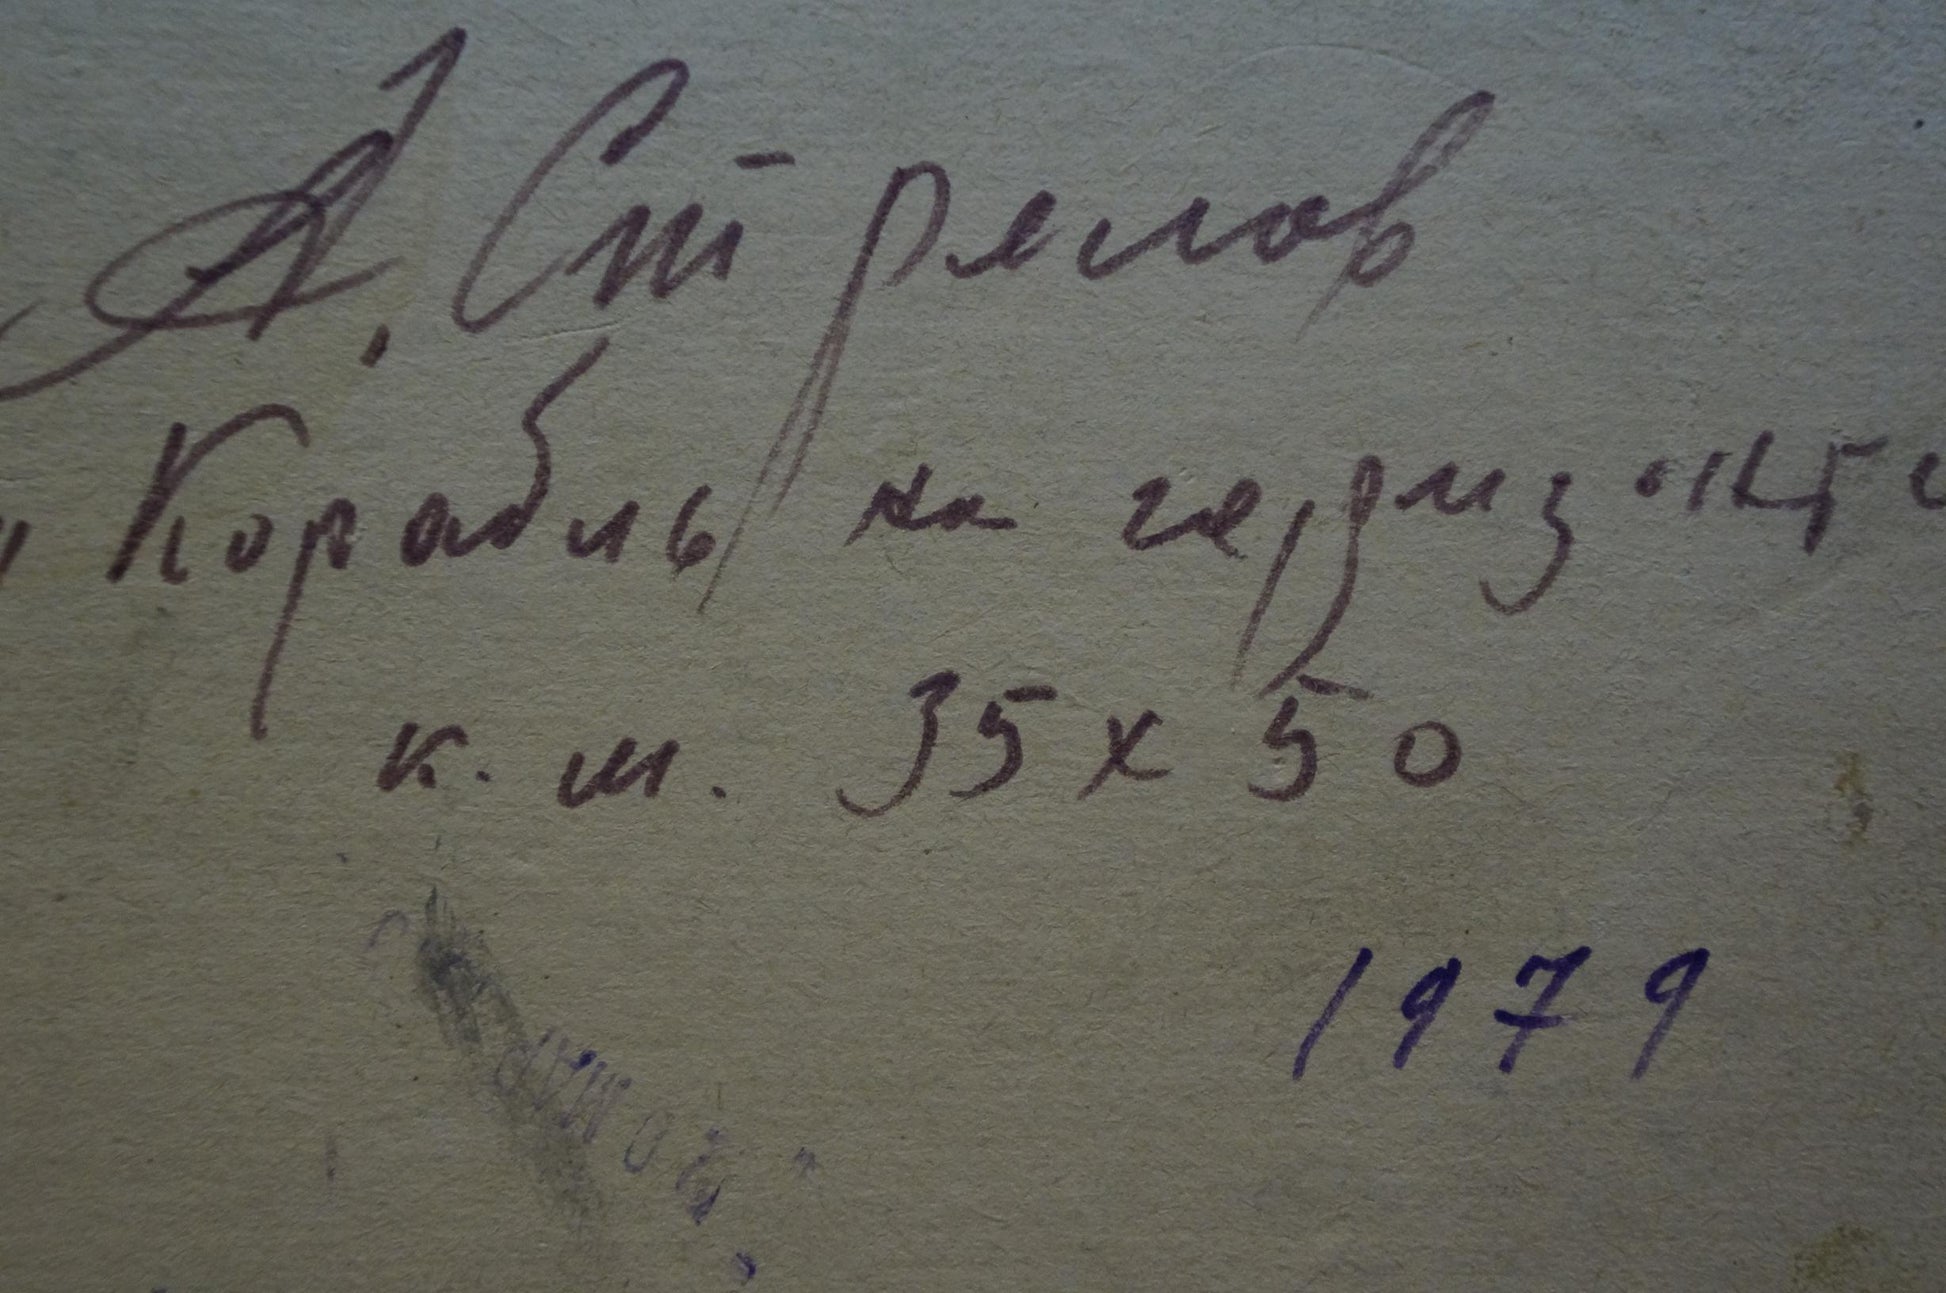 А. Стрелов
"Корабль на горизонте
к. м. 35 х 50
1979